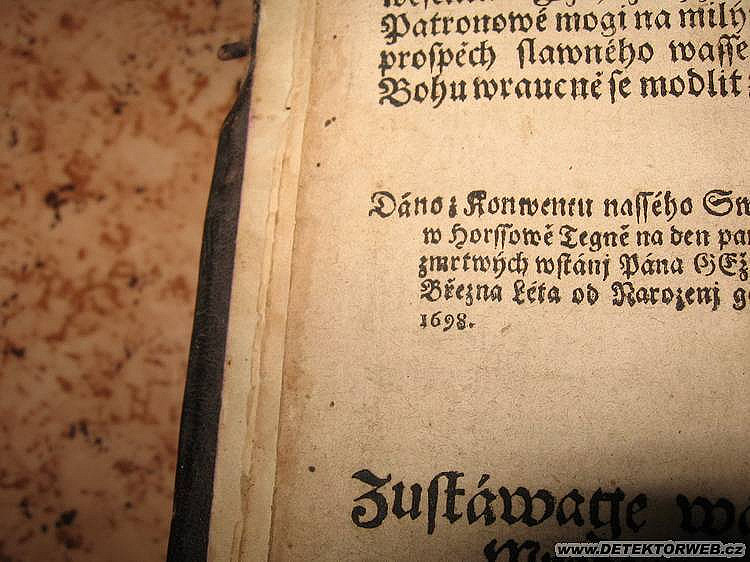 Patronowé mogi na milý
prospěch slawného wasse
Bohu wraucně se modlit
Dáno z Konwentu nasséh̷o Sw
w Horssowě Tegně na den pa
zmrtwých wstánj Pána GEž
Března Léta od Narozenj g
1698.
Zustáwagje
www.DETEKTORWEB.cz